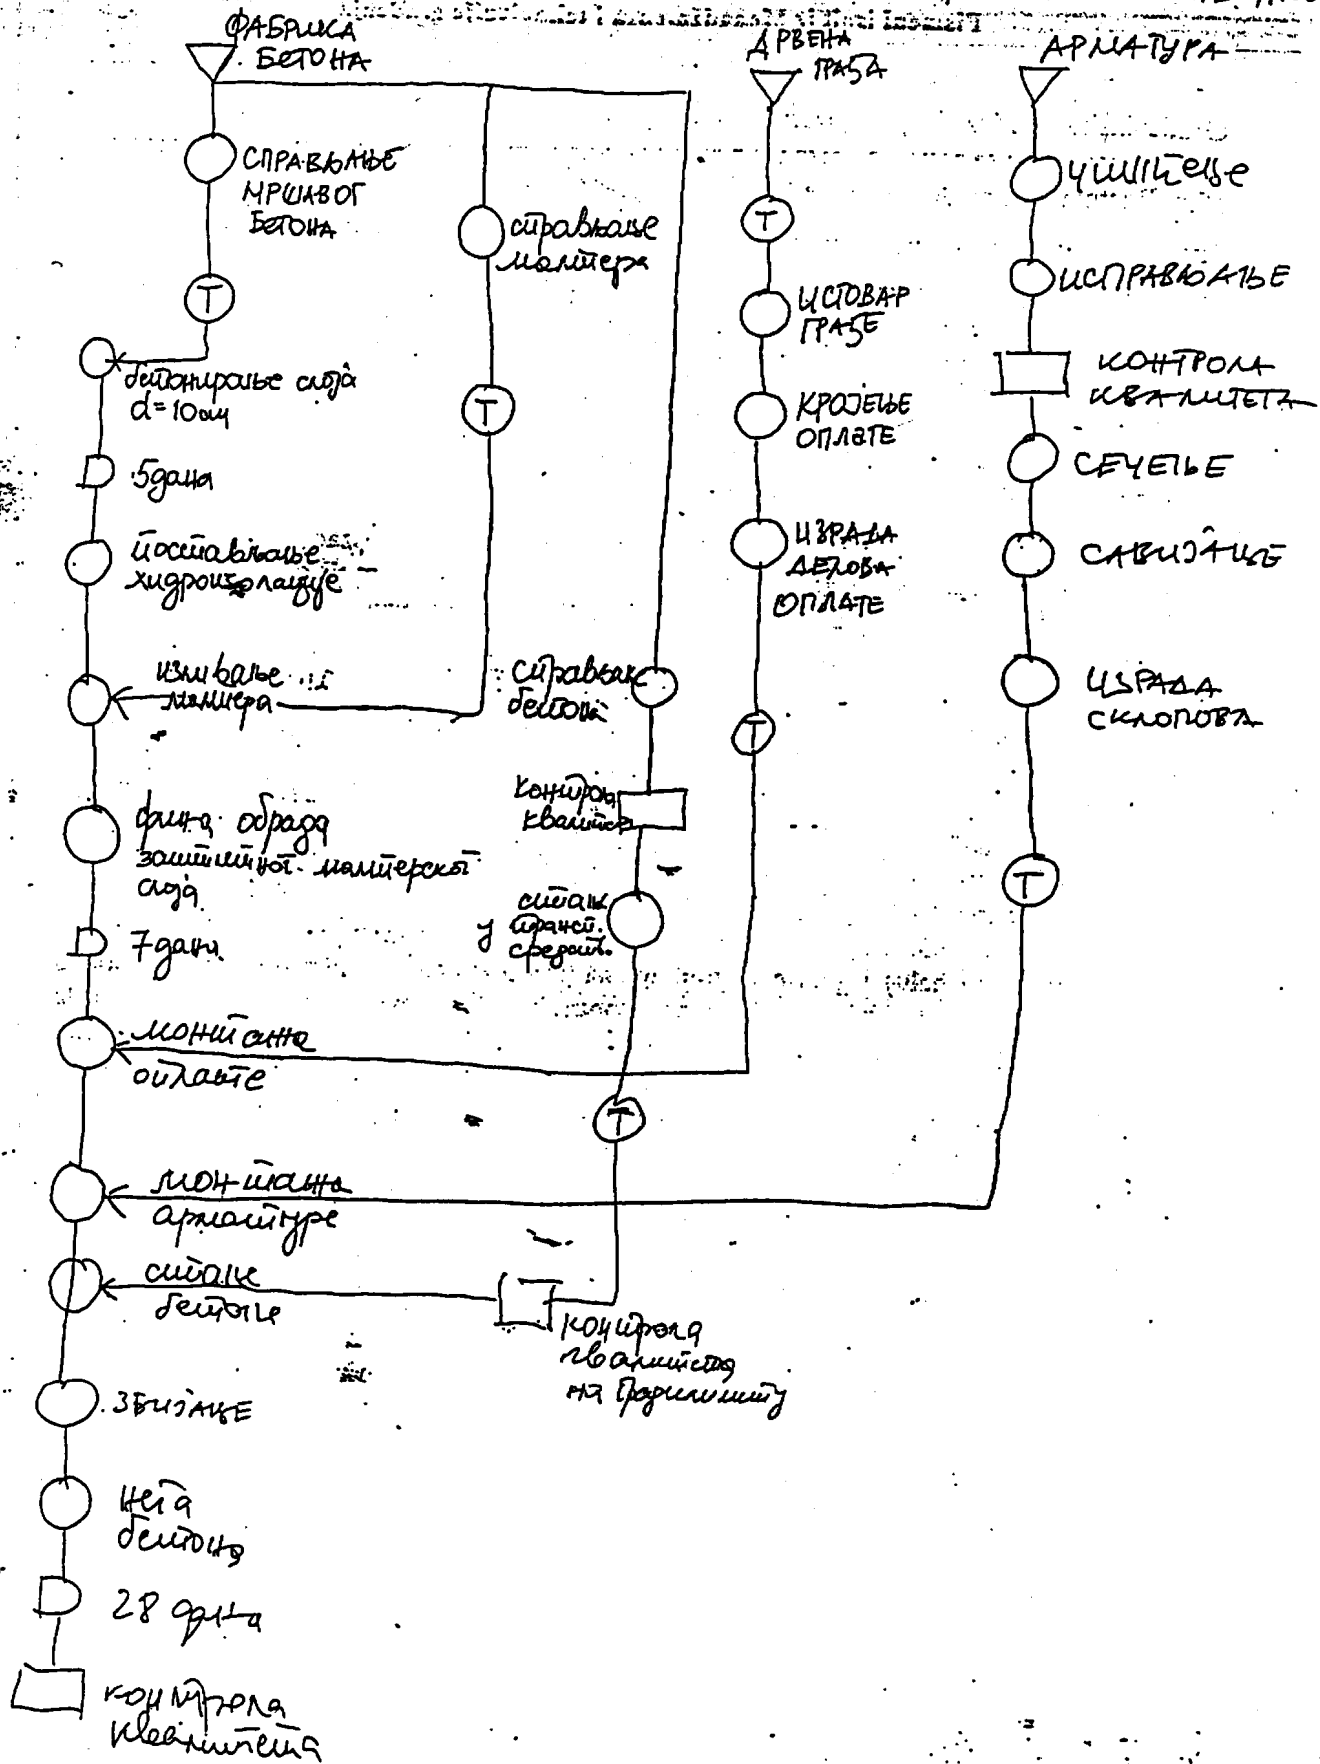 ФАБРИКА
БЕТОНА
СПРАВЉАЊЕ
МРШАВОГ
БЕТОНА
Т
бетонирање слоја
d=10cm
5 дана
постављање
хидроизолације
изливање
малтера
фина обрада
заштитног малтерског
слоја
7 дана
монтажа
оплате
монтажа
арматуре
бетона
ЗБИЈАЊЕ
нега
бетона
28 дана
контрола
квалитета
справљање
малтера
Т
бетона
квалитета
у трансп.
средств.
Т
контрола
квалитета
на градилишту
ДРВЕНА
ГРАЂА
Т
ИСТОВАР
ГРАЂЕ
КРОЈЕЊЕ
ОПЛАТЕ
ИЗРАДА
ДЕЛОВА
ОПЛАТЕ
Т
АРМАТУРА
ЧИШЋЕЊЕ
ИСПРАВЉАЊЕ
КОНТРОЛА
КВАЛИТЕТА
СЕЧЕЊЕ
САВИЈАЊЕ
ИЗРАДА
СКЛОПОВА
Т